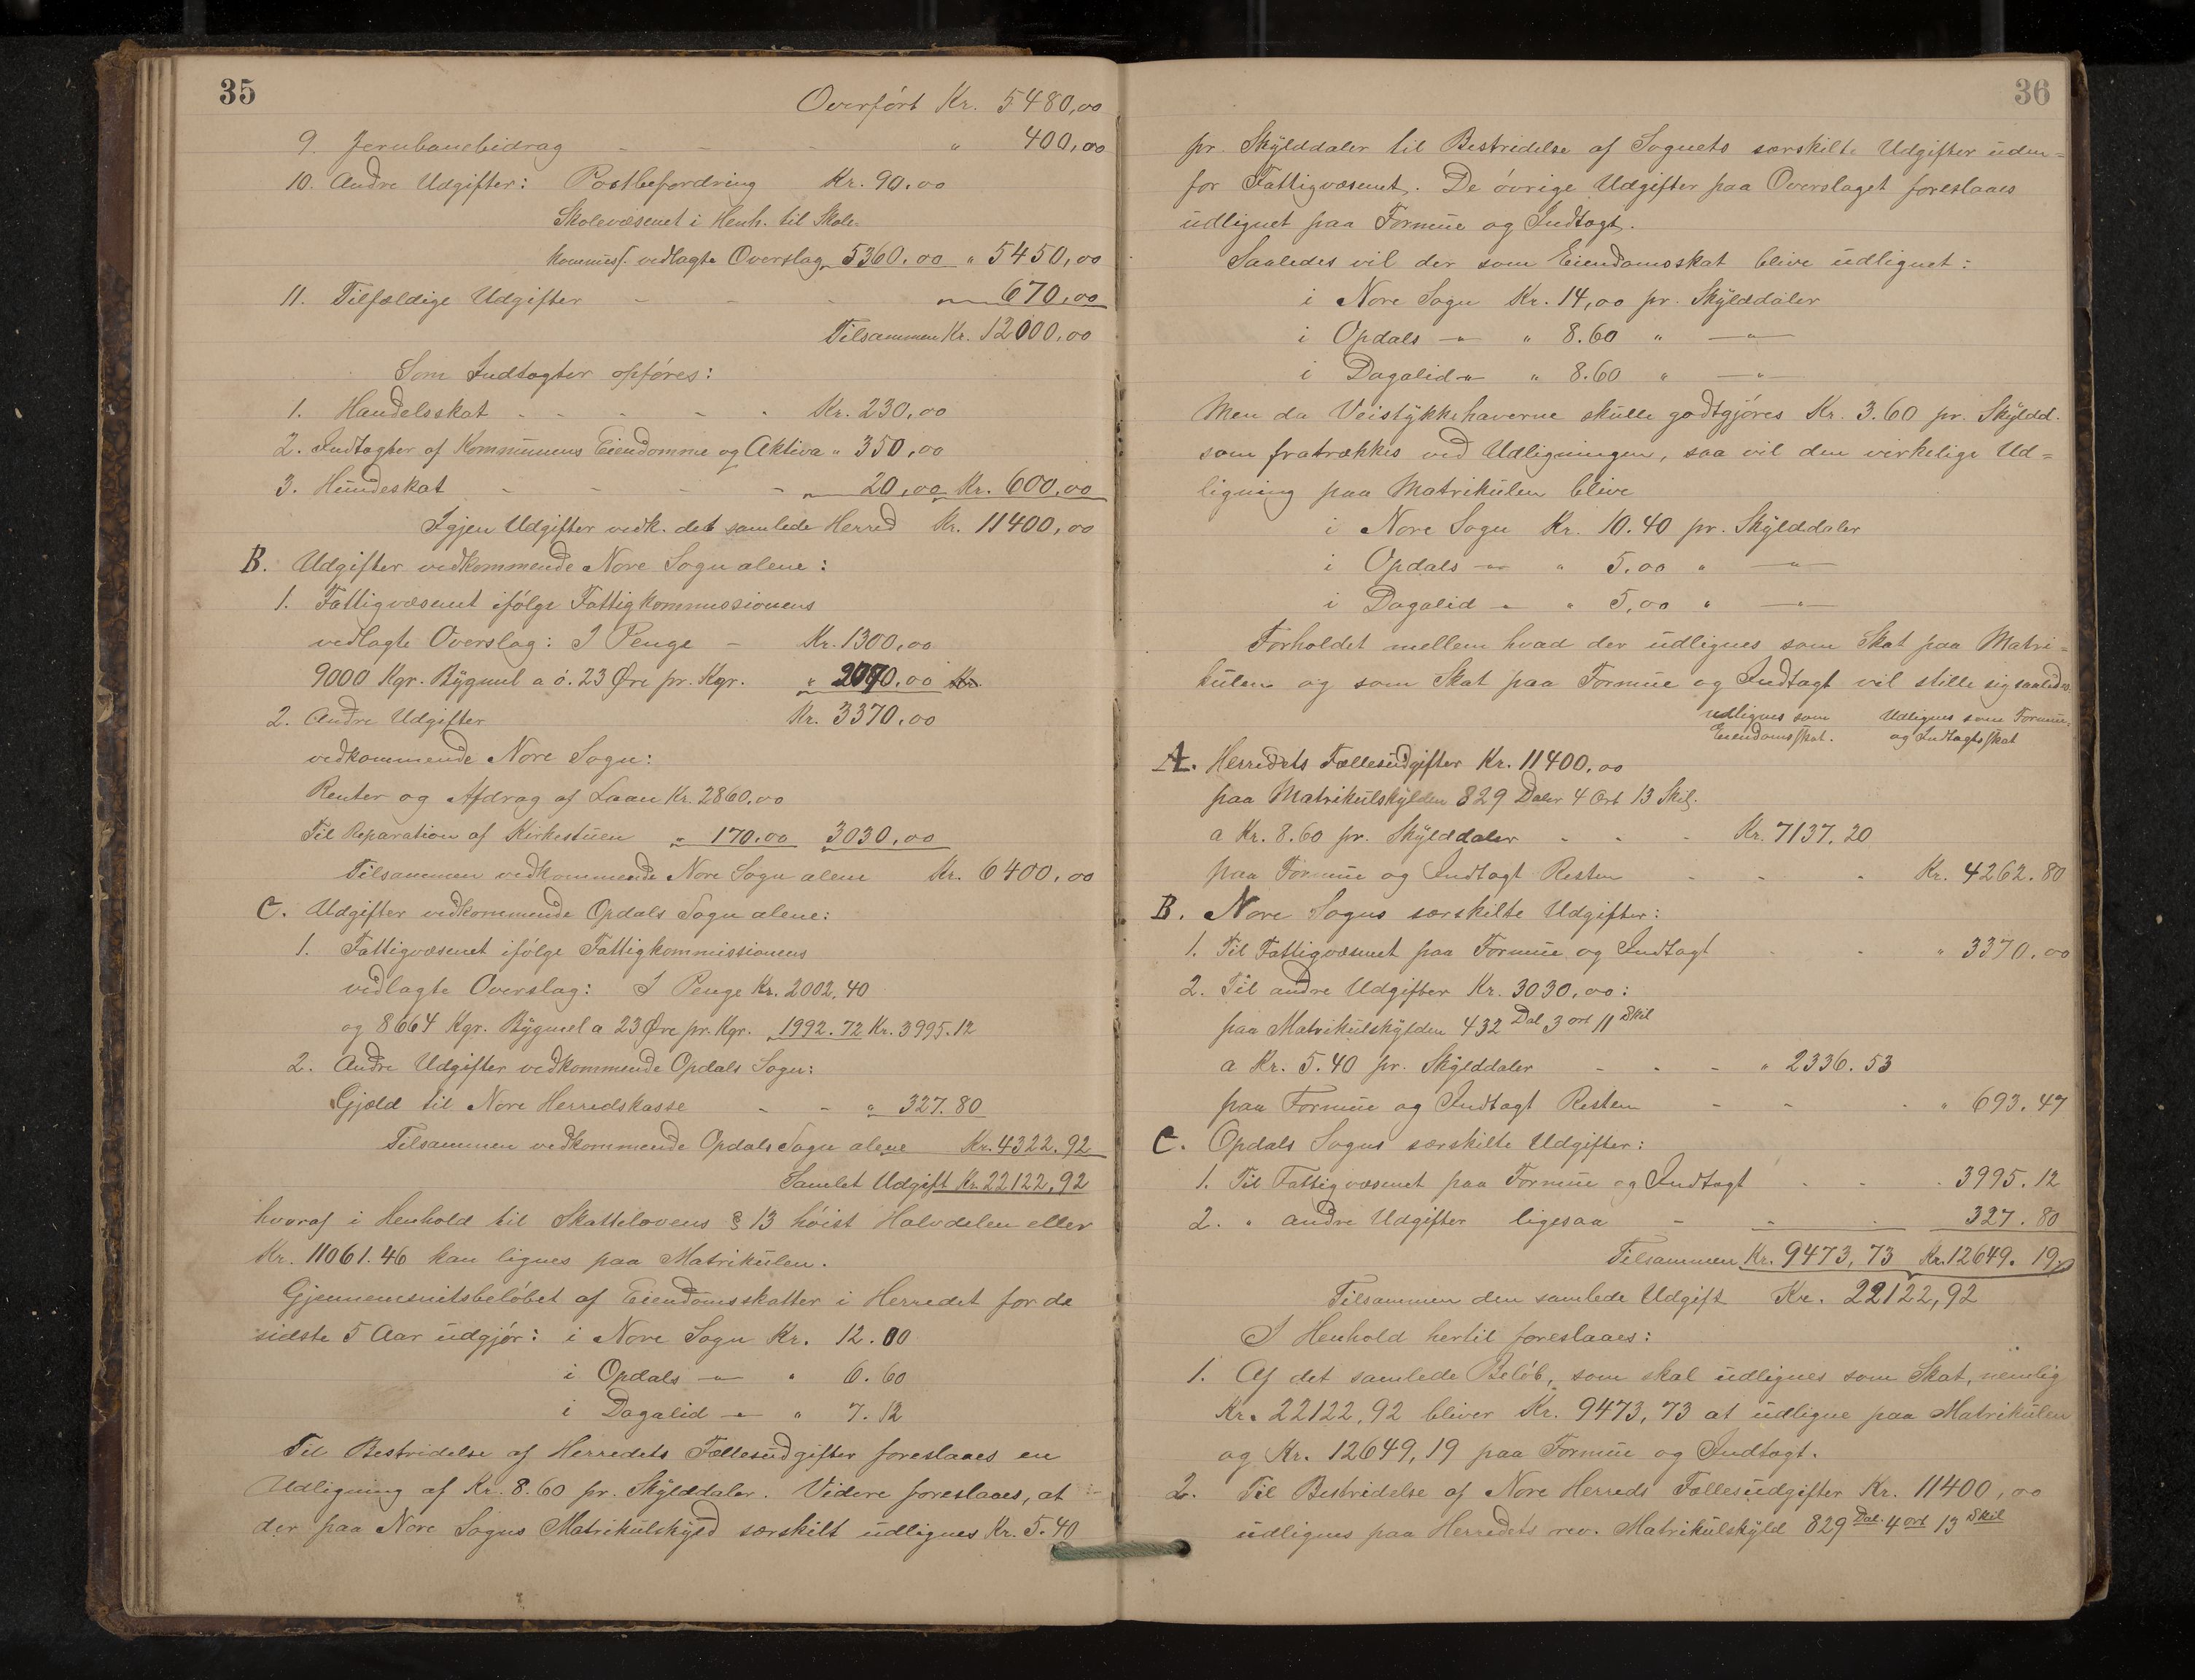 35
Overført Kr. 5480,00
9. Jernbanebidrag - - - " 400,00
10. Andre Udgifter: Postbefordring Kr. 90,00
Skolevæsenet i Henh. til Skole-
kommiss. vedlagte Overslag " 5360,00 " 5450,00
11. Tilfældige Udgifter - - - " 670,00
Tilsammen Kr. 12000,00
Som Indtægter opføres:
1. Handelsskat - - - - - Kr. 230,00
2. Indtægter af Kommunens Eiendomme og Aktiva " 350,00
3. Hundeskat - - - - " 20,00 Kr. 600,00
Igjen Udgifter vedk. det samlede Herred Kr. 11400,00
B. Udgifter vedkommende Nore Sogn alene:
1. Fattigvæsenet ifølge Fattigkommissionens
vedlagte Overslag: I Penge - Kr. 1300,00
9000 Kgr. Bygmel a ö. 23 Øre pr. Kgr. " 2070,00 Kr.
2. Andre Udgifter Kr. 3370,00
vedkommende Nore Sogn:
Renter og Afdrag af Laan Kr. 2860,00
Til Reparation af Kirkestuen " 170,00 3030,00
Tilsammen vedkommende Nore Sogn alene Kr. 6400,00
C. Udgifter vedkommende Opdals Sogn alene:
1. Fattigvæsenet ifølge Fattigkommissionens
vedlagte Overslag: I Penge Kr. 2002,40
og 8664 Kgr. Bygmel a 23 Øre pr. Kgr. " 1992.72 Kr. 3995.12
2. Andre Udgifter vedkommende Opdals Sogn:
Gjæld til Nore Herredskasse - - " 327.80
Tilsammen vedkommende Opdals Sogn alene Kr. 4322.92
Samlet Udgift Kr. 22122,92
hvoraf i Henhold til Skattelovens § 13 høist Halvdelen eller
Kr. 11061.46 kan lignes paa Matrikulen.
Gjennemsnitsbeløbet af Eiendomsskatter i Herredet for de
sidste 5 Aar udgjør: i Nore Sogn Kr. 12.00
i Opdals -"- " 6.60
i Dagalid -"- " 7.12
Til Bestridelse af Herredets Fællesudgifter foreslaaes en
Udligning af Kr. 8.60 pr. Skylddaler. Videre foreslaaes, at
der paa Nore Sogns Matrikulskyld særskilt udlignes Kr. 5.40
36
pr. Skylddaler til Bestridelse af Sognets særskilte Udgifter uden=
for Fattigvæsenet. De øvrige Udgifter paa Overslaget foreslaaes
udlignet paa Formue og Indtægt.
Saaledes vil der som Eiendomsskat blive udlignet:
i Nore Sogn Kr. 14,00 pr. Skylddaler
i Opdals -"- " 8.60 " -"-
i Dagalid -"- " 8.60 " -"-
Men da Veistykkehaverne skulle godtgjøres Kr. 3.60 pr. Skyldd.
som fratrækkes ved Udligningen, saa vil den virkelige Ud=
ligning paa Matrikulen blive
i Nore Sogn Kr. 10.40 pr. Skylddaler
i Opdals -"- " 5.00 " -"-
i Dagalid -"- " 5,00 " -"-
Forholdet mellem hvad der udlignes som Skat paa Matri=
kulen og som Skat paa Formue og Indtægt vil stille sig saaledes:
udlignes som Udlignes som Formue=
Eiendomsskat. og Indtægtsskat
A. Herredets Fællesudgifter Kr. 11400,00
paa Matrikulskylden 829 Daler 4 Ort 13 Skil.
a Kr. 8.60 pr. Skylddaler - - - Kr. 7137.20
paa Formue og Indtægt Resten - - - Kr. 4262.80
B. Nore Sogns særskilte Udgifter:
1. Til Fattigvæsenet paa Formue og Indtægt - - " 3370.00
2. Til andre Udgifter Kr. 3030,00:
paa Matrikulskylden 432 Dal 3 ort 11 Skil
a Kr. 5.40 pr. Skylddaler - - - " 2336.53
paa Formue og Indtægt Resten - - - " 693.47
C. Opdals Sogns særskilte Udgifter:
1. Til Fattigvæsenet paa Formue og Indtægt - - - 3995.12
2. " andre Udgifter ligesaa - - - 327.80
Tilsammen Kr. 9473,73 Kr. 12649.19
Tilsammen den samlede Udgift Kr. 22122,92
I Henhold hertil foreslaaes:
1. Af det samlede Beløb, som skal udlignes som Skat, nemlig
Kr. 22122,92 bliver Kr. 9473,73 at udligne paa Matrikulen
og Kr. 12649,19 paa Formue og Indtægt.
2. Til Bestridelse af Nore Herreds Fællesudgifter Kr. 11400,00
udlignes paa Herredets rev. Matrikulskyld 829 Dal. 4 ort 13 Skil